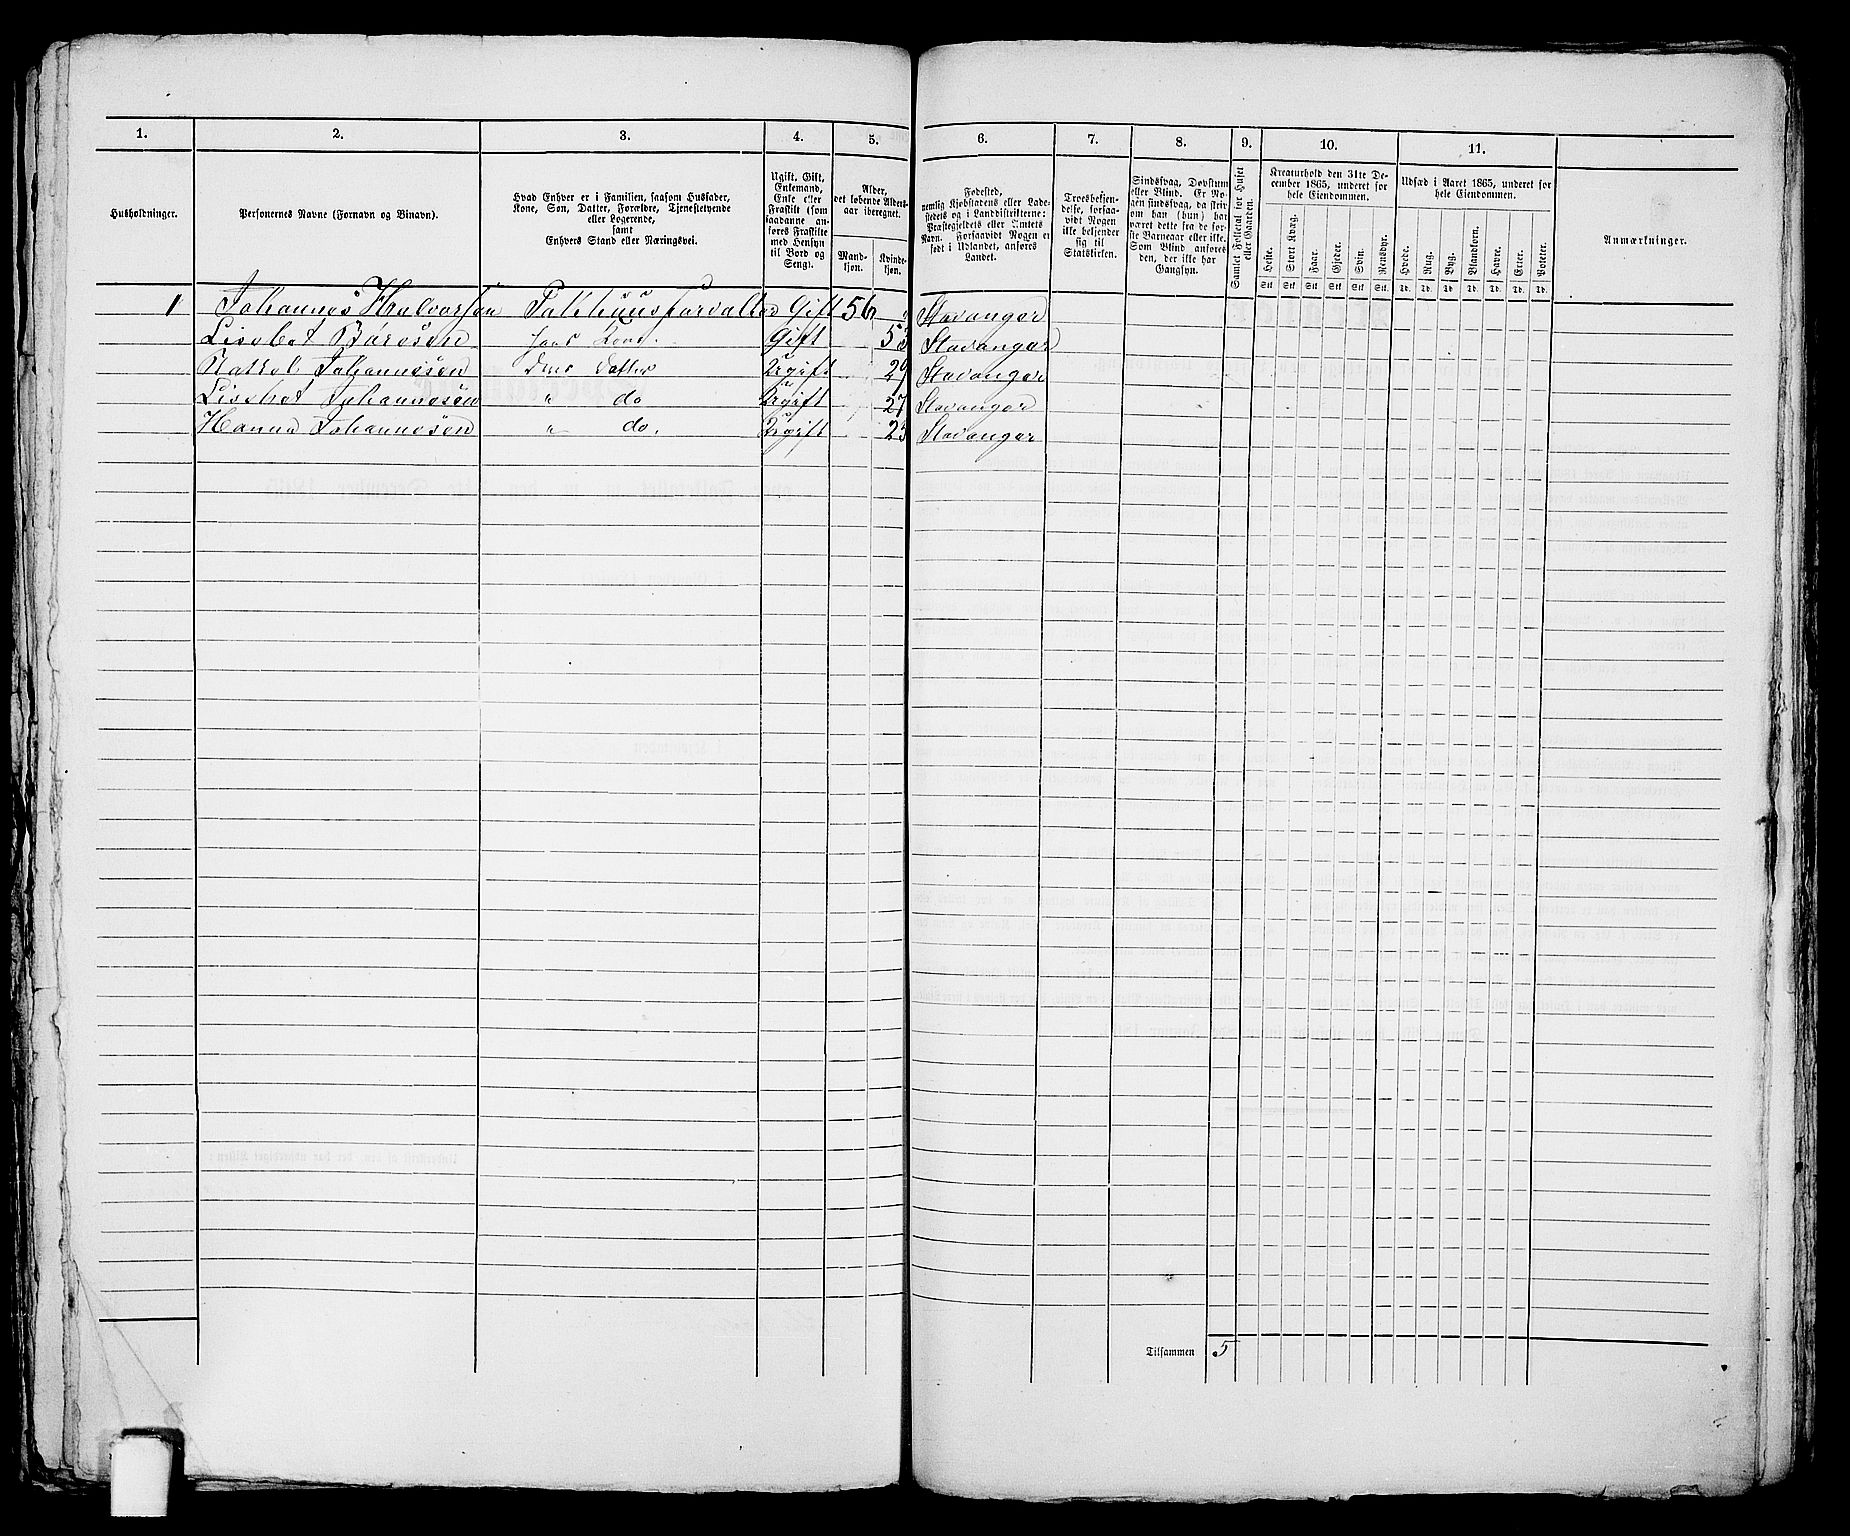 1. 2. 3. 4. 5. 6. 7. 8. 9. 10. 11.
Husholdninger.
Personernes Navne (Fornavn og Binavn).
Hvad Enhver er i Familien, saasom Husfader,
Kone, Søn, Datter, Forældre, Tjenestetyende
eller Logerende,
samt
Enhvers Stand eller Næringsvei.
Ugift, Gift,
Enkemand,
Enke eller
Fraskilt (som
saadanne an-
føres Fraskilte
med Hensyn
til Bord og
Seng).
Alder,
det løbende Alders-
aar iberegnet.
Mand-
kjøn.
Kvinde-
kjøn.
Fødested,
nemlig Kjøbstadens eller Lade-
stedets og i Landdistrikterne:
Præstegjeldets eller Amtets
Navn. Forsaavidt Nogen er
født i Udlandet, anføres
Landet.
Troesbekjen-
delse, forsaa-
vidt Nogen
ikke bekjender
sig til
Statskirken.
Sindssvag, Døvstum
eller Blind. Er No-
gen sindssvag, da skriv
om han (hun) har
været dette fra de før-
ste Barneaar eller ikke.
Som Blind anføres
den, der ikke har
Gangsyn.
Samlet Folketal for Huset
eller Gaarden.
Kreaturhold den 31te De-
cember 1865, underet for
hele Eiendommen.
Heste. Stort Kvæg. Faar. Gjeder. Svin. Rensdyr.
Stk Stk Stk Stk Stk Stk.
Udsæd i Aaret 1865, underet for
hele Eiendommen.
Hvede. Rug. Byg. Blandkorn. Havre. Erter. Poteter.
Td. Td. Td. Td. Td. Td. Td.
Anmærkninger.
1 Johannes Halvorsen Pakhuusforvalter Gift 56 " Stavanger
Lisebet Børesen hans Kone. Gift 53 Stavanger
Johannesen Dens Datter Ugift 29 Stavanger
Lisebet Johannesen " do Ugift 27 Stavanger
Hanna Johannesen " do. Ugift 23 Stavanger
Tilsammen 5